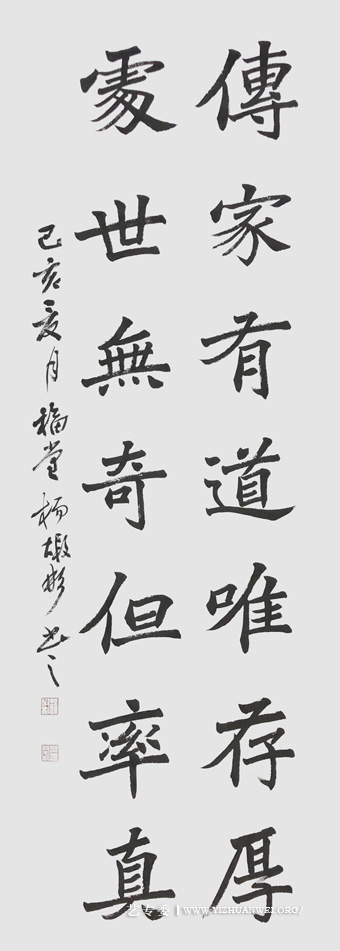 傳家有道唯存厚
處世無奇但率真
己亥夏月福堂楊彬書之
艺专委 | WWW.YIZHUANWEI.ORG/